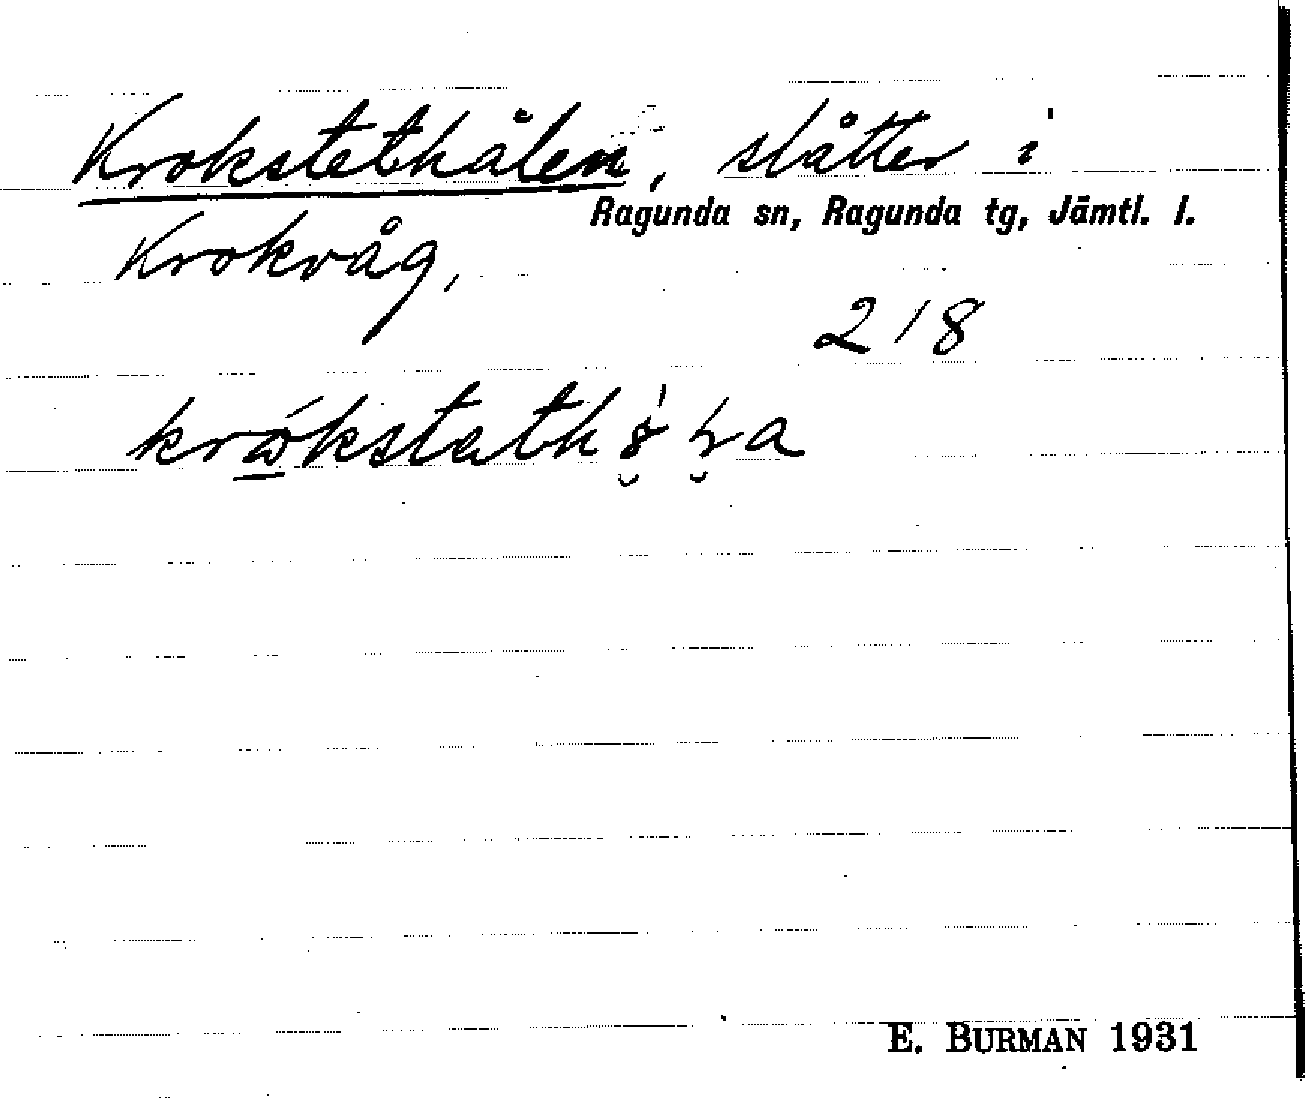 Krokstethålen, slåtter i
Ragunda sn, Ragunda tg, Jämtl. l.
Krokvåg,
218
E. BURMAN 1931